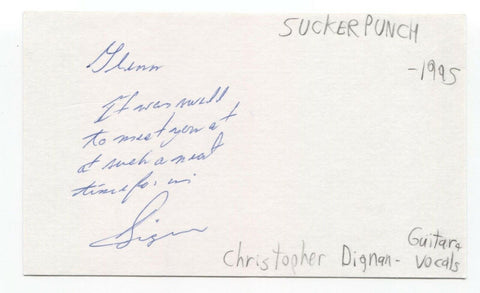 SUCKERPUNCH
-1995
Glenn
It was well
to meet you at
at such a neat
time for us
Dignan
Guitar &
Christopher Dignan- Vocals